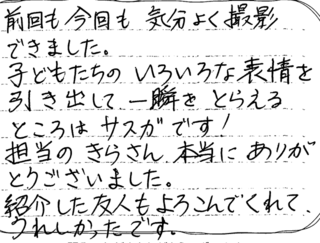 前回も今回も 気分よく撮影
できました。
子どもたちの いろいろな表情を
引き出して 一瞬を とらえる
ところは サスガです!
担当の きらさん 本当に ありが
とうございました。
紹介した友人もよろこんでくれて、
うれしかったです。